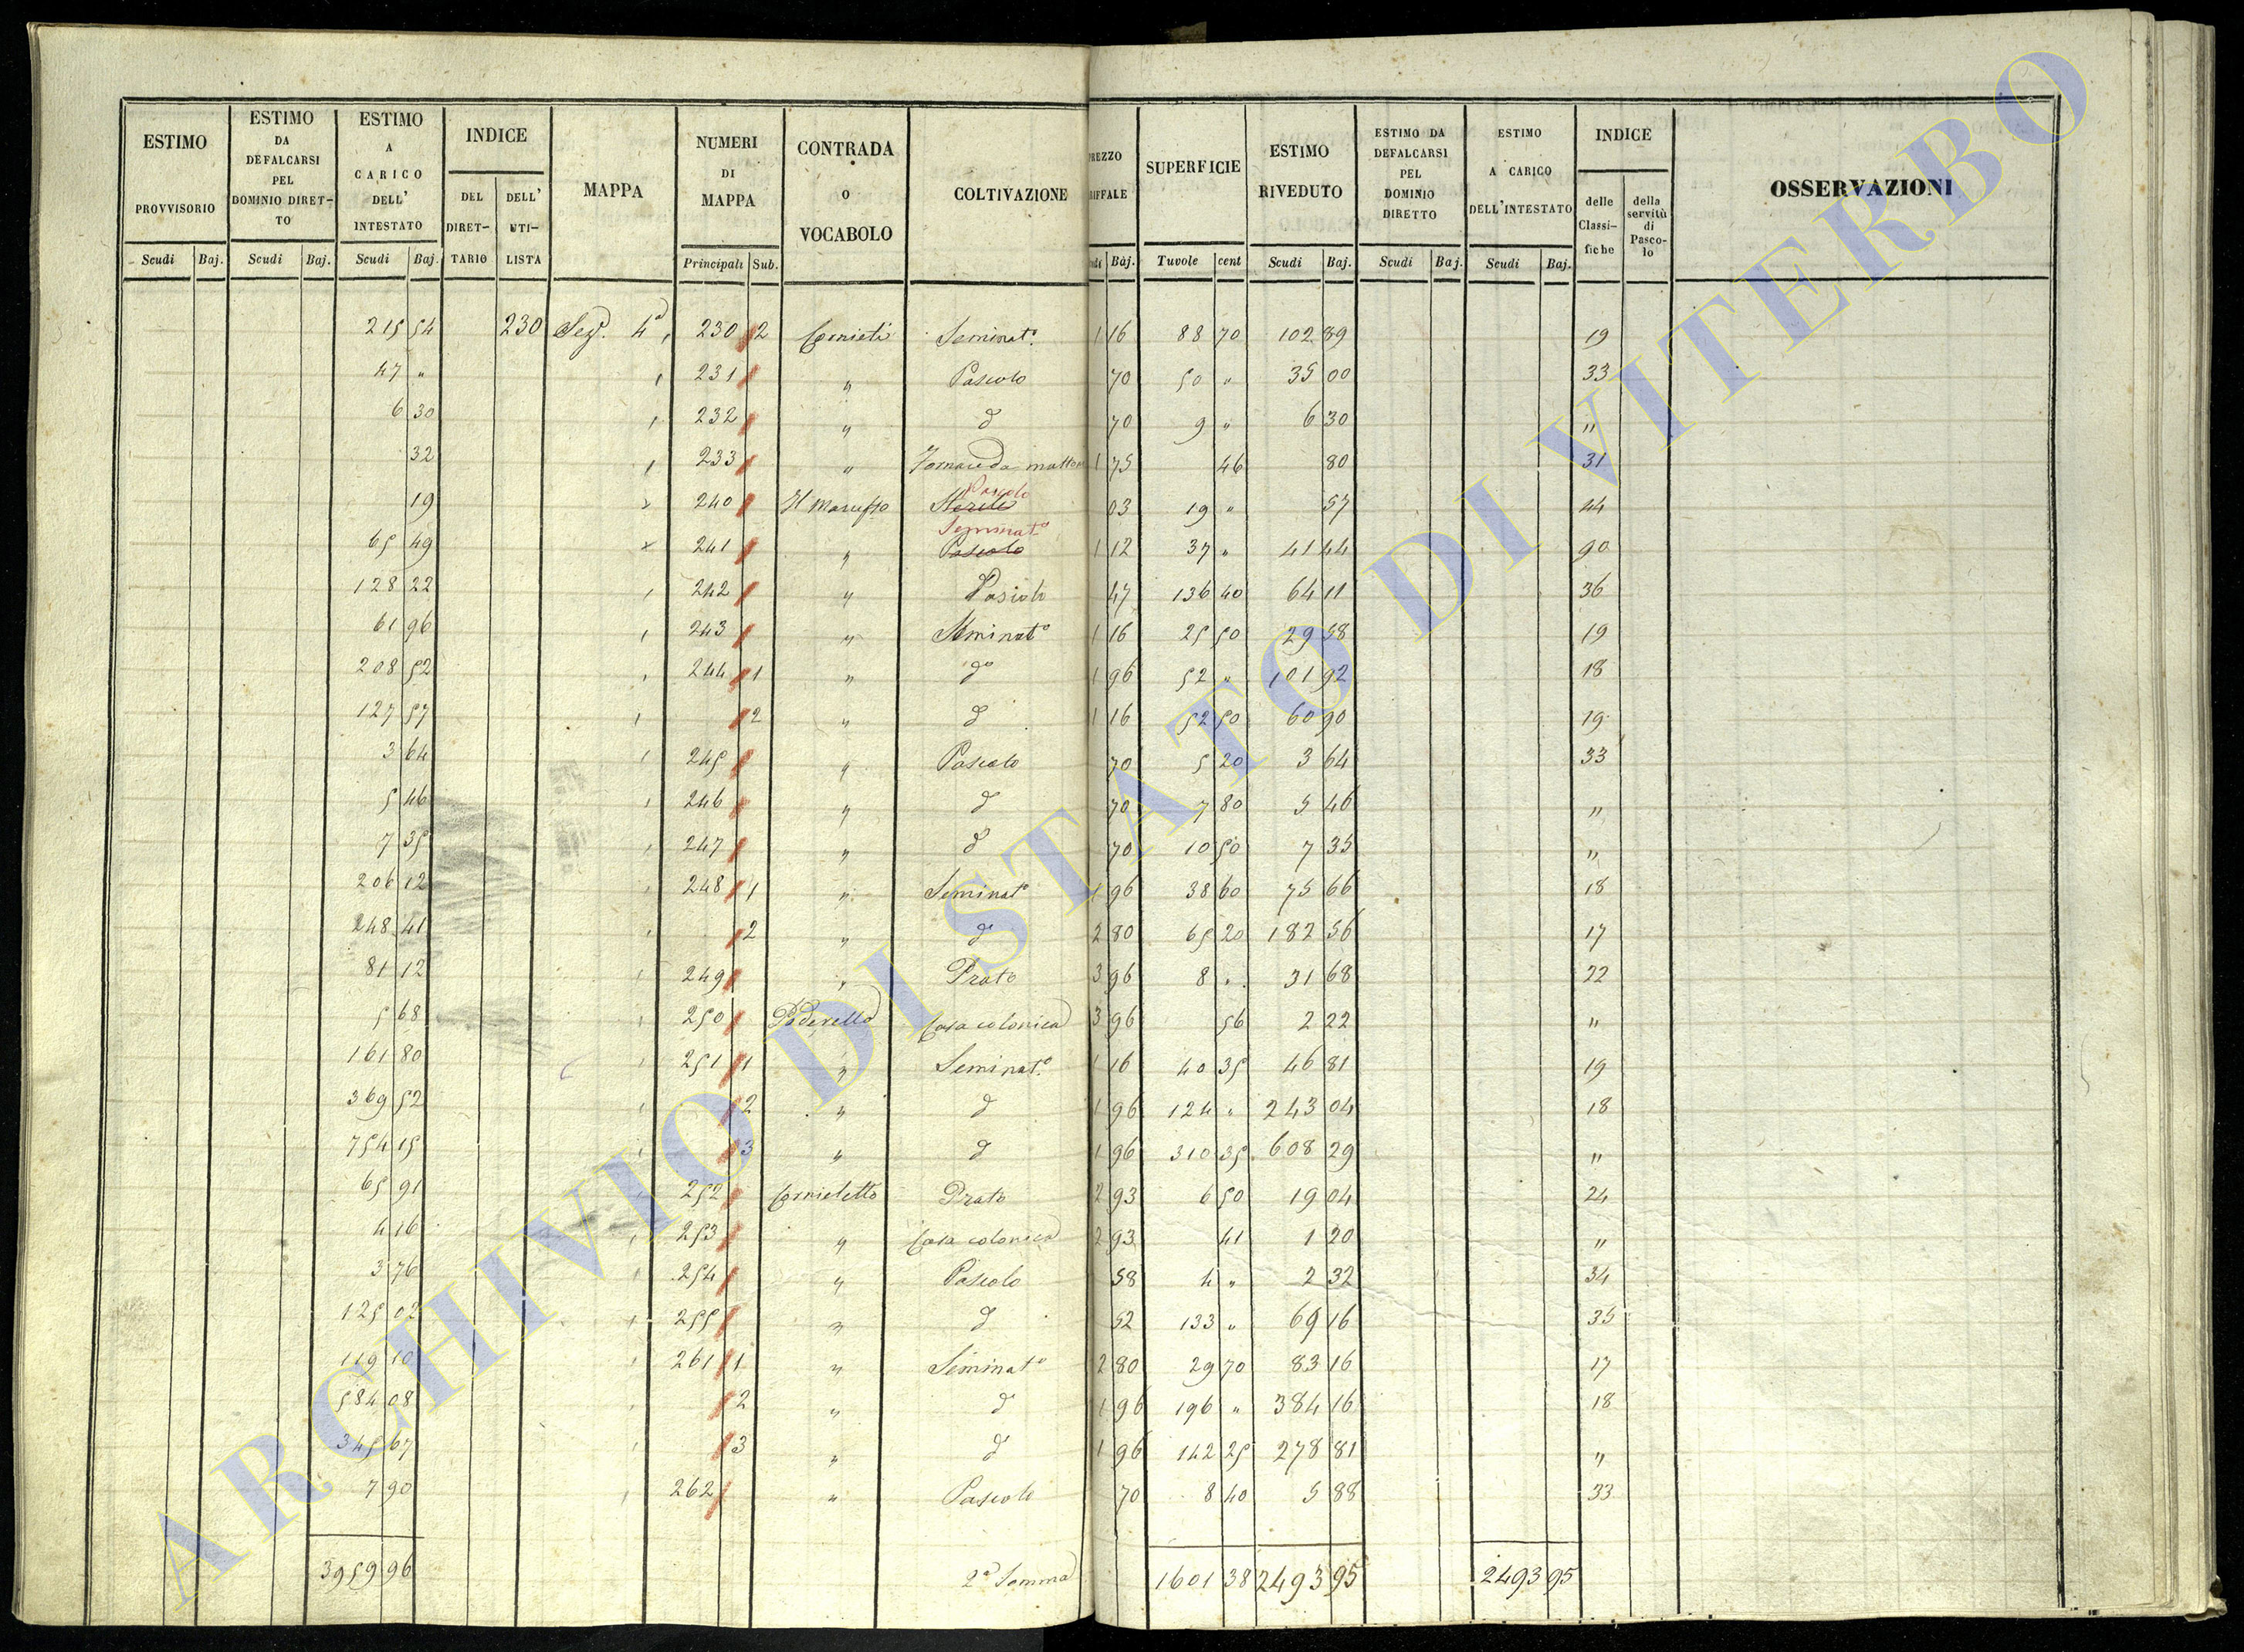 ESTIMO PROVVISORIO Scudi Baj.
ESTIMO DA DEFALCARSI PEL DOMINIO DIRET-TO Scudi Baj.
ESTIMO A CARICO DELL' INTESTATO Scudi Baj.
INDICE DEL DIRET-TARIO DELL' UTI-LISTA
MAPPA
NUMERI DI MAPPA Principali Sub.
CONTRADA O VOCABOLO
COLTIVAZIONE
REZZO RIFFALE Baj.
SUPERFICIE Tavole cent
ESTIMO RIVEDUTO Scudi Baj.
ESTIMO DA DEFALCARSI PEL DOMINIO DIRETTO Scudi Baj.
ESTIMO A CARICO DELL'INTESTATO Scudi Baj.
INDICE delle Classi-fiche della servitù di Pasco-lo
OSSERVAZIONI
215 54 230 Seg. 4ª 230 2 Cornieti Seminat.º 1 16 88 70 102 89 19
47 " 231 " Pascolo 70 50 " 35 00 33
6 30 232 " d 70 9 " 6 30 "
32 233 " Fornace da mattoni 1 75 46 80 31
19 240 Pascolo Sterile 03 19 " 57 44
65 49 241 " Seminatº Pascolo 1 12 37 " 41 44 90
128 22 242 " Pascolo 47 136 40 64 11 36
61 96 243 " Seminatº 1 16 25 50 29 58 19
208 52 244 1 " dº 1 96 52 " 101 92 18
127 57 2 " d 1 16 52 50 60 90 19
3 64 245 " Pascolo 70 5 20 3 64 33
5 46 246 " d 70 7 80 5 46 "
7 35 247 " d 70 10 50 7 35 "
206 12 248 1 " Seminatº 1 96 38 60 75 66 18
248 41 2 " d 2 80 65 20 182 56 17
81 12 249 " Prato 3 96 8 " 31 68 22
5 68 250 Poderello Casa colonica 3 96 56 2 22 "
161 80 251 1 " Seminat.º 1 16 40 35 46 81 19
369 52 2 " d 1 96 124 " 243 04 18
754 15 3 " d 1 96 310 35 608 29 "
65 91 252 Cornieletto Prato 2 93 6 50 19 04 24
4 16 253 " Casa colonica 2 93 41 1 20 "
3 76 254 " Pascolo 58 4 " 2 32 34
125 02 255 " d 52 133 " 69 16 35
119 10 261 1 " Seminatº 2 80 29 70 83 16 17
584 08 2 " d 1 96 196 " 384 16 18
345 67 3 " d 1 96 142 25 278 81 "
7 90 262 " Pascolo 70 8 40 5 88 33
3959 96 2ª Somma 1601 38 2493 95 2493 95
ARCHIVIO DI STATO DI VITERBO